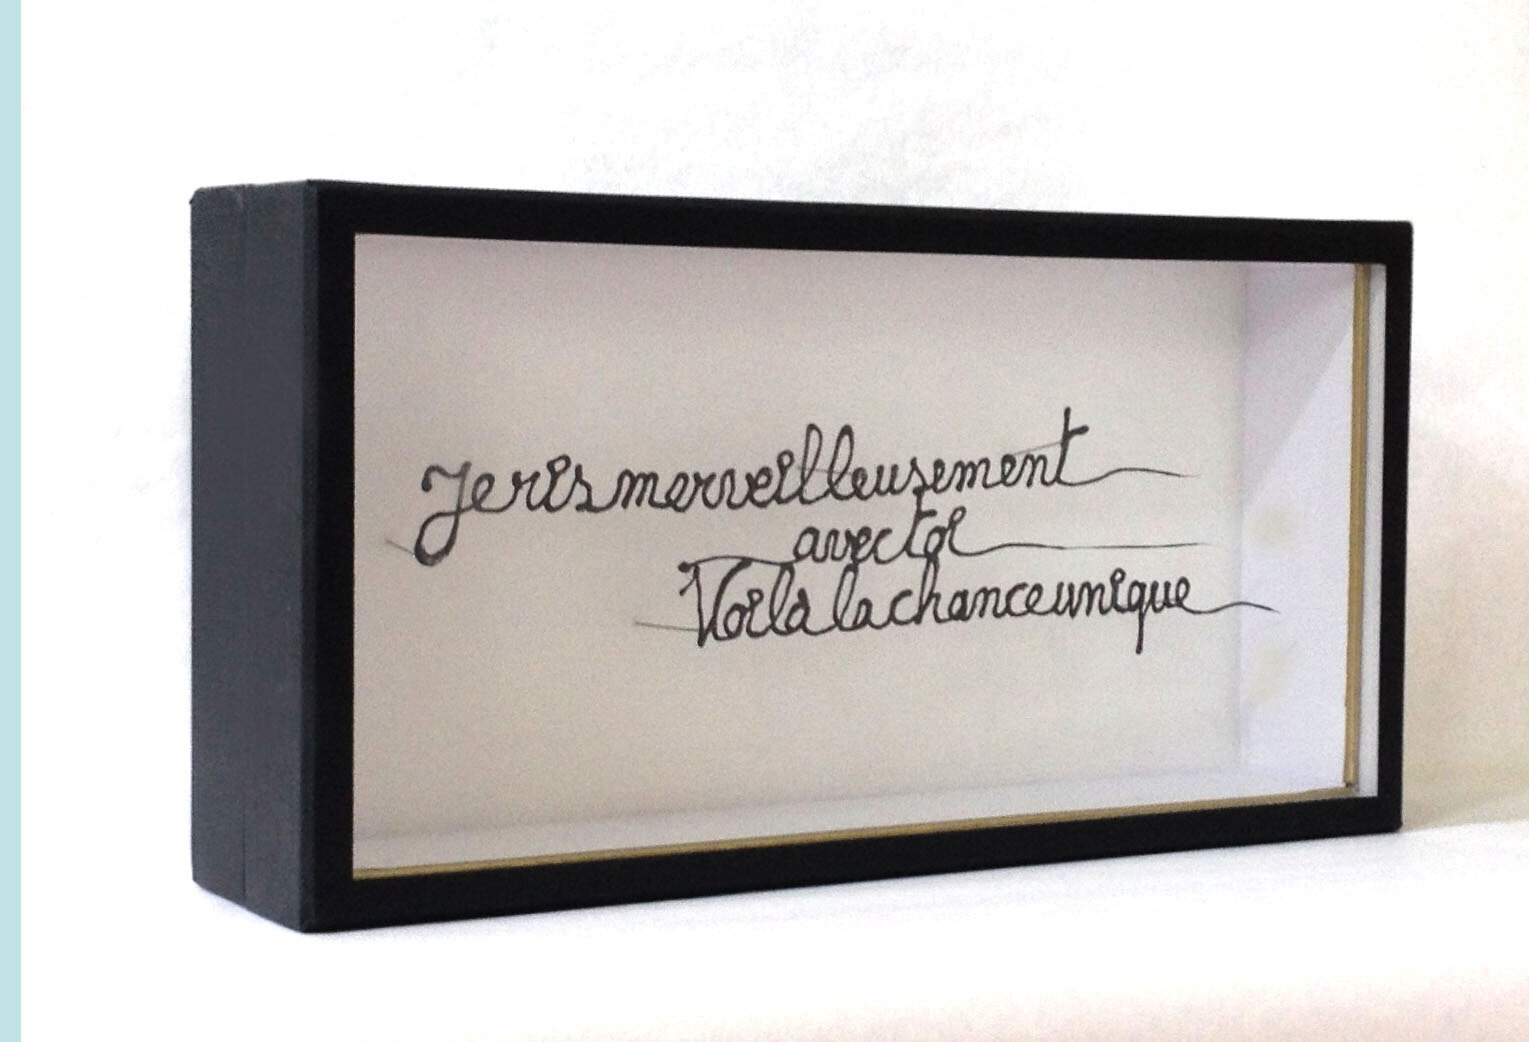 Je ris merveilleusement
avec toi
Voilà la chance unique